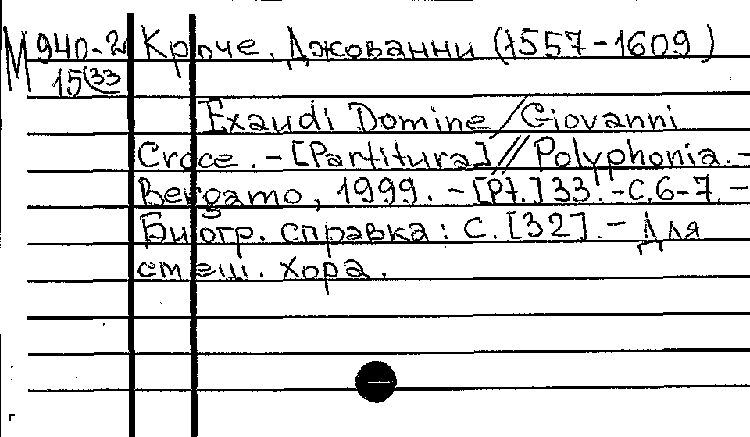 М 940-2 Кроче, Джованни (1557-1609)
15(33
Exaudi Domine / Giovanni
Croce. - [Partitura] // Polyphonia. -
Bergamo, 1999. - [Pt.] 33. - С. 6-7. -
Биогр. справка: с. [32]. - Для
смеш. хора.